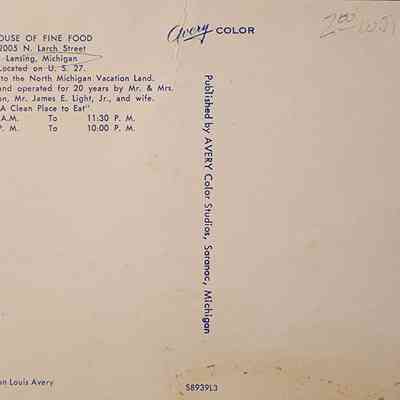 OUSE OF FINE FOOD
2005 N. Larch Street
Lansing, Michigan
Located on U. S. 27.
to the North Michigan Vacation Land.
and operated for 20 years by Mr. & Mrs.
on, Mr. James E. Light, Jr., and wife.
A Clean Place to Eat"
A.M. To 11:30 P. M.
P. M. To 10:00 P. M.
Avery COLOR
2.00
Published by AVERY Color Studios, Saranac, Michigan
on Louis Avery
S8939L3